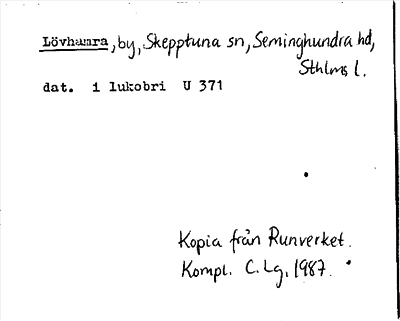 Lövhamra, by, Skepptuna sn, Seminghundra hd,
Sthlms l.
dat. i lukobri U 371
Kopia från Runverket.
Kompl. C. Lg, 1987.